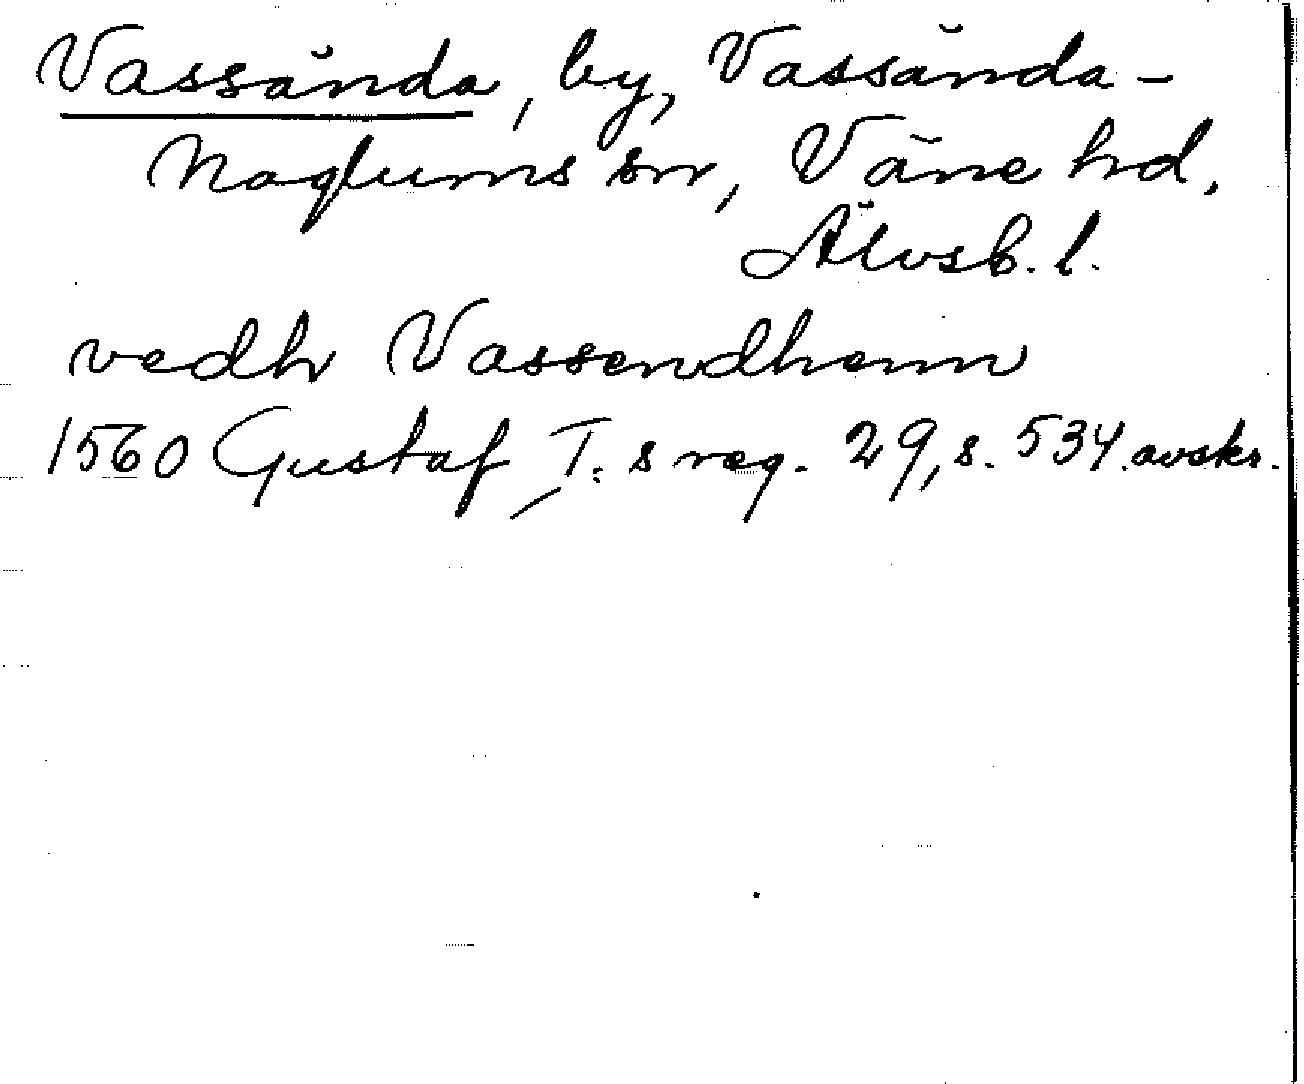 Vassända, by, Vassända-
Naglums sn, Väne hd,
Älvsb. l.
vedh Vassendhenn
1560 Gustaf I:s reg. 29, s. 534. avskr.